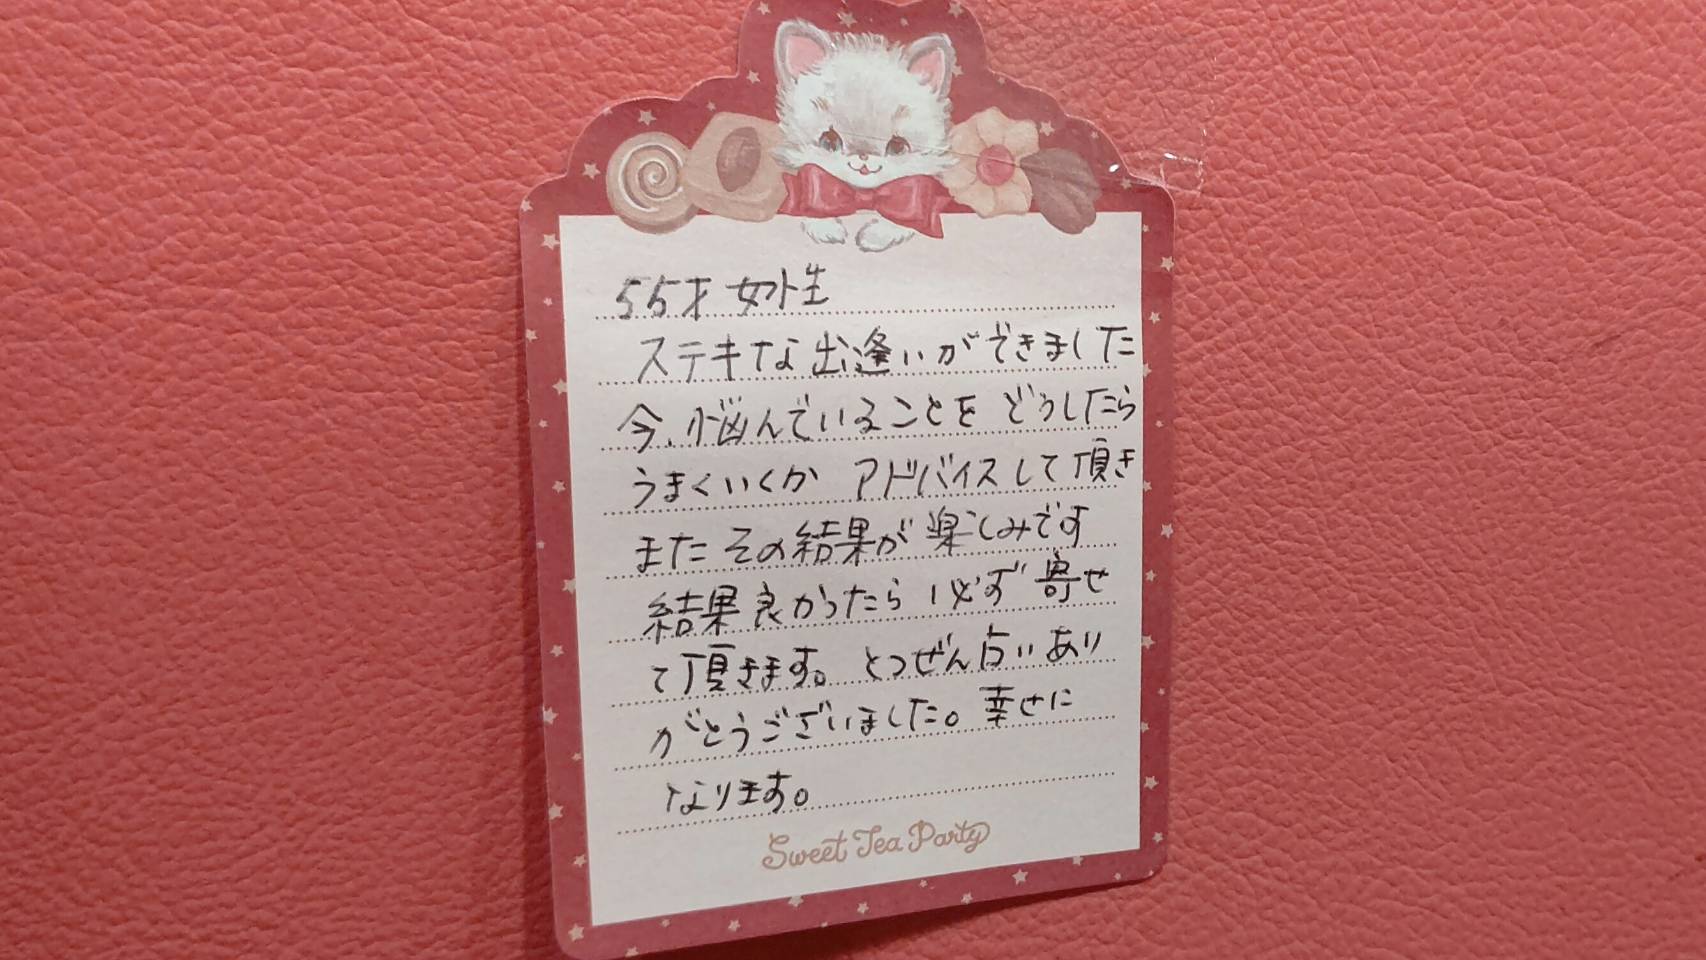 55才 女性
ステキな出逢いができました
今、悩んでいることを どうしたら
うまくいくか アドバイスして頂き
また その結果が楽しみです
結果良かったら 必ず寄せ
て頂きます。とつぜん占い あり
がとうございました。幸せに
なります。
Sweet Tea Party